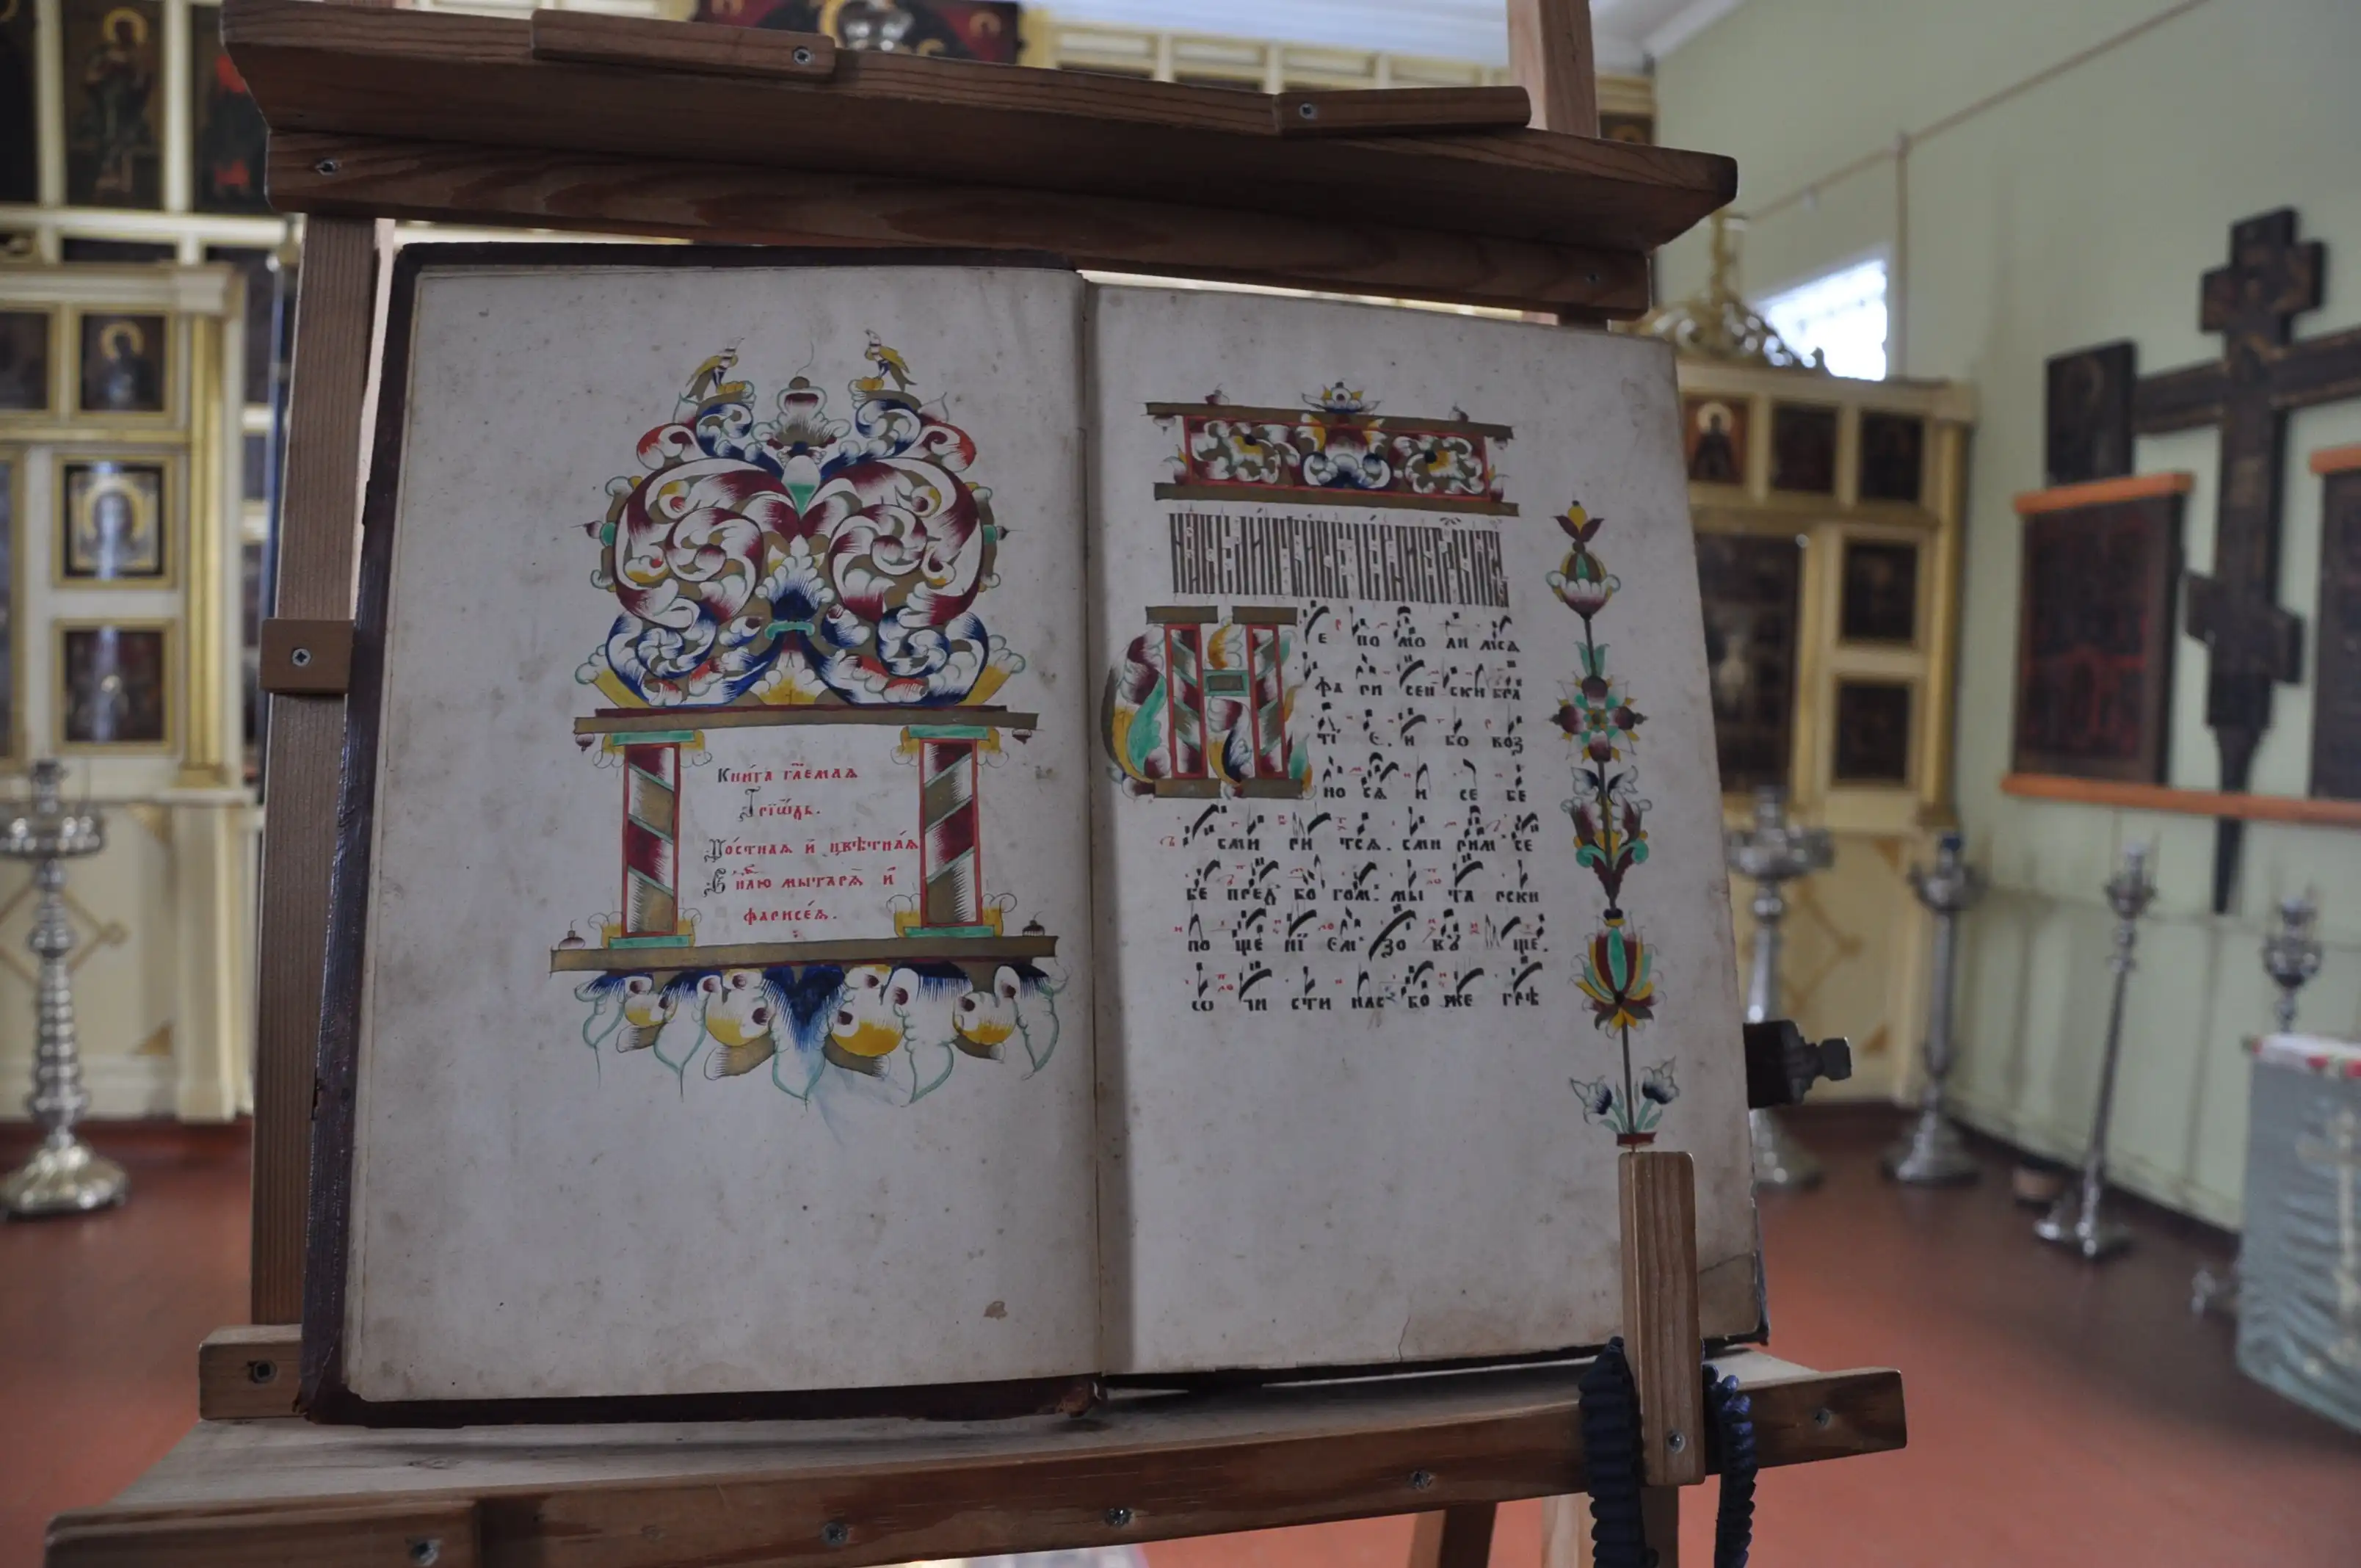 Кни́га гл҃емая
Трїѡ́дь.
По́стная и҆ цвѣ́тная
В нлю мытарѧ̀ и҆
фарисе́ѧ.
Н е по мо ли мсѧ
фа ри сей ски бра
ті є. и бо воз
но сѧ и се бе
сми ри тсѧ. сми рим се
бе пред бо гом. мы та рски
по ще нї ем зо вꙋ ще.
ѡ чи сти нас бо же грѣ